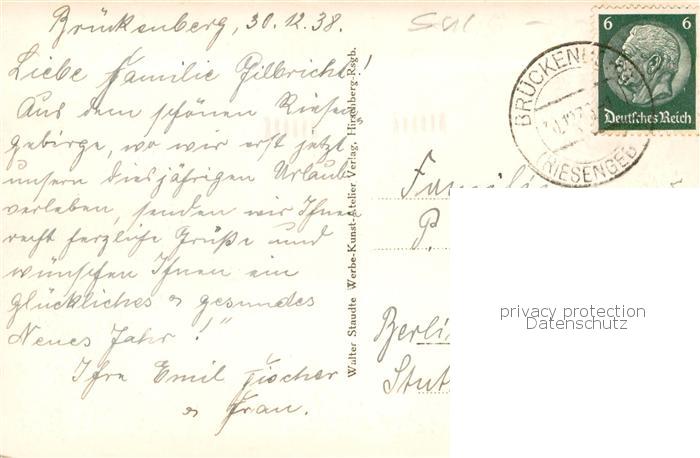 Brückenberg, 30.12.38.
Liebe Familie Gilbricht!
Aus dem schönen Riesen
gebirge, wo wir erst jetzt
unsern diesjährigen Urlaub
verleben, senden wir Ihnen
recht herzliche Grüße und
wünschen Ihnen ein
glückliches & gesundes
Neues Jahr!"
Ihre Emil Fischer
& Frau.
Walter Staudte Werbe-Kunst-Atelier Verlag, Hirschberg-Rsgb.
6 6
Deutsches Reich
BRÜCKENB
(RIESENGEB
P.
Berlin
privacy protection
Datenschutz